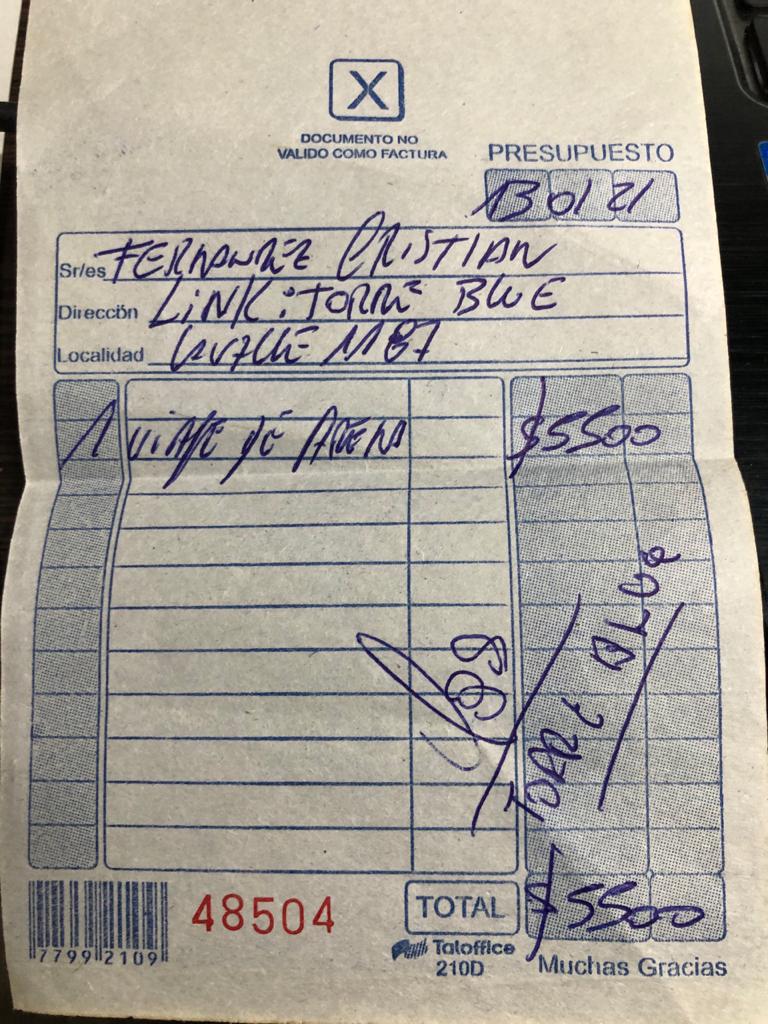 X
DOCUMENTO NO
VALIDO COMO FACTURA
PRESUPUESTO
13 01 21
Sr/es FERNANDEZ CRISTIAN
Dirección LINK: TORRE BLUE
Localidad LAVALLE 1187
1 VIAJE DE ARENA $5500
TORRE BLUE
48504
TOTAL $5500
Taloffice
210D
Muchas Gracias
77992109